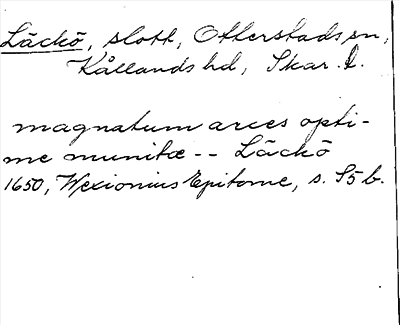 Läckö, slott, Otterstads sn,
Kållands hd, Skar. l.
magnatum arces opti-
me munitæ -- Läckö
1650, Wexionius Epitome, s. S5 b.